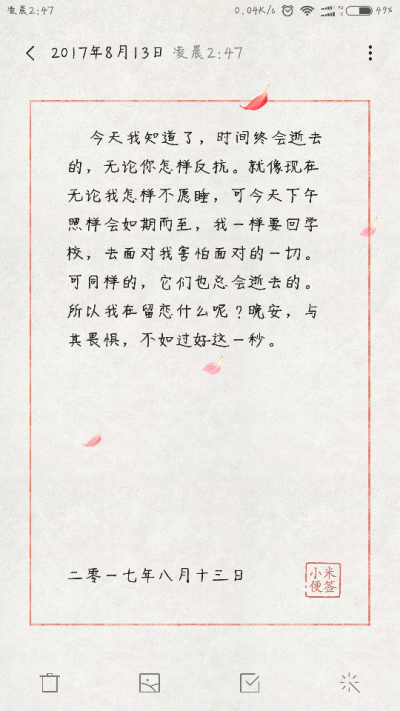 凌晨2:47
0.04K/s
49%
2017年8月13日 凌晨2:47
今天我知道了，时间终会逝去
的，无论你怎样反抗。就像现在
无论我怎样不愿睡，可今天下午
照样会如期而至，我一样要回学
校，去面对我害怕面对的一切。
可同样的，它们也总会逝去的。
所以我在留恋什么呢？晚安，与
其畏惧，不如过好这一秒。
二零一七年八月十三日
小米
便签